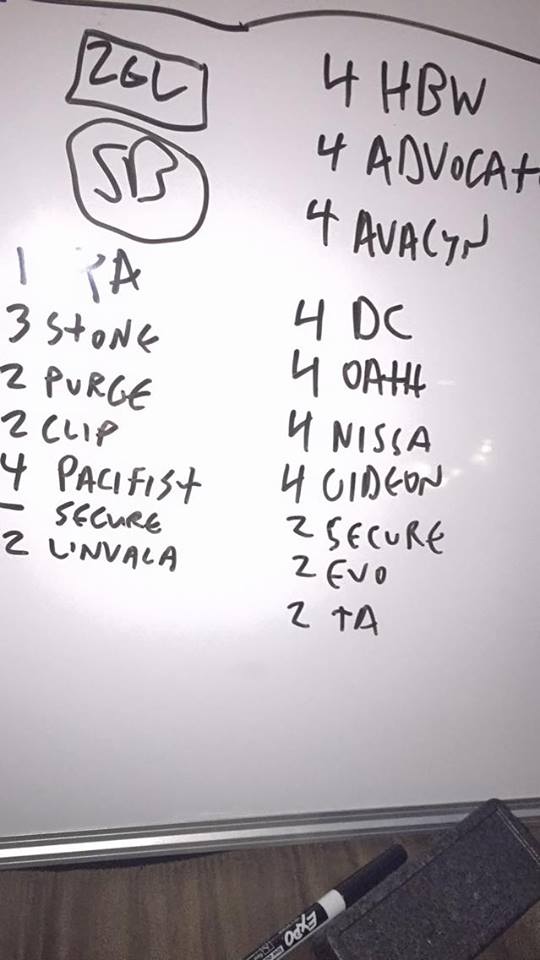 26L
SB
1 TA
3 STONE
2 PURGE
2 CLIP
4 PACIFIST
SECURE
2 LINVALA
4 HBW
4 ADVOCAT
4 AVACYN
4 DC
4 OATH
4 NISSA
4 GIDEON
2 SECURE
2 EVO
2 TA
EXPO